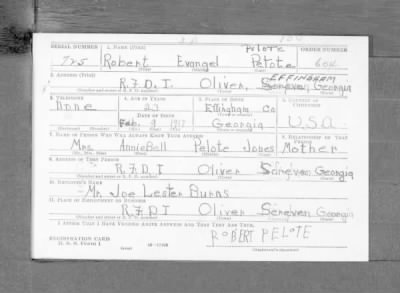 SERIAL NUMBER 1. NAME (Print) PELOTE ORDER NUMBER
725 Robert Evangel Pelote 604
(First) (Middle) (Last)
2. ADDRESS (Print) EFFINGHAM
R.F.D.1. Oliver, Screven, Georgia
(Number and street or R. F. D. number) (Town) (County) (State)
3. TELEPHONE 4. AGE IN YEARS 5. PLACE OF BIRTH 6. COUNTRY OF CITIZENSHIP
None 23 Effingham Co
DATE OF BIRTH (Town or county)
Feb. 1917 Georgia U.S.A.
(Exchange) (Number) (Mo.) (Day) (Yr.) (State or country)
7. NAME OF PERSON WHO WILL ALWAYS KNOW YOUR ADDRESS 8. RELATIONSHIP OF THAT PERSON
Mrs. AnnieBell Pelote Jones Mother
(Mr., Mrs., Miss) (First) (Middle) (Last)
9. ADDRESS OF THAT PERSON
R.F.D.1 Oliver Screven, Georgia
(Number and street or R. F. D. number) (Town) (County) (State)
10. EMPLOYER'S NAME
Mr. Joe Lester Burns
11. PLACE OF EMPLOYMENT OR BUSINESS
R.F.D.1 Oliver Screven Georgia
(Number and street or R. F. D. number) (Town) (County) (State)
I AFFIRM THAT I HAVE VERIFIED ABOVE ANSWERS AND THAT THEY ARE TRUE.
ROBERT PELOTE
REGISTRATION CARD
D. S. S. FORM 1 (over) 16-17105 (Registrant's signature)